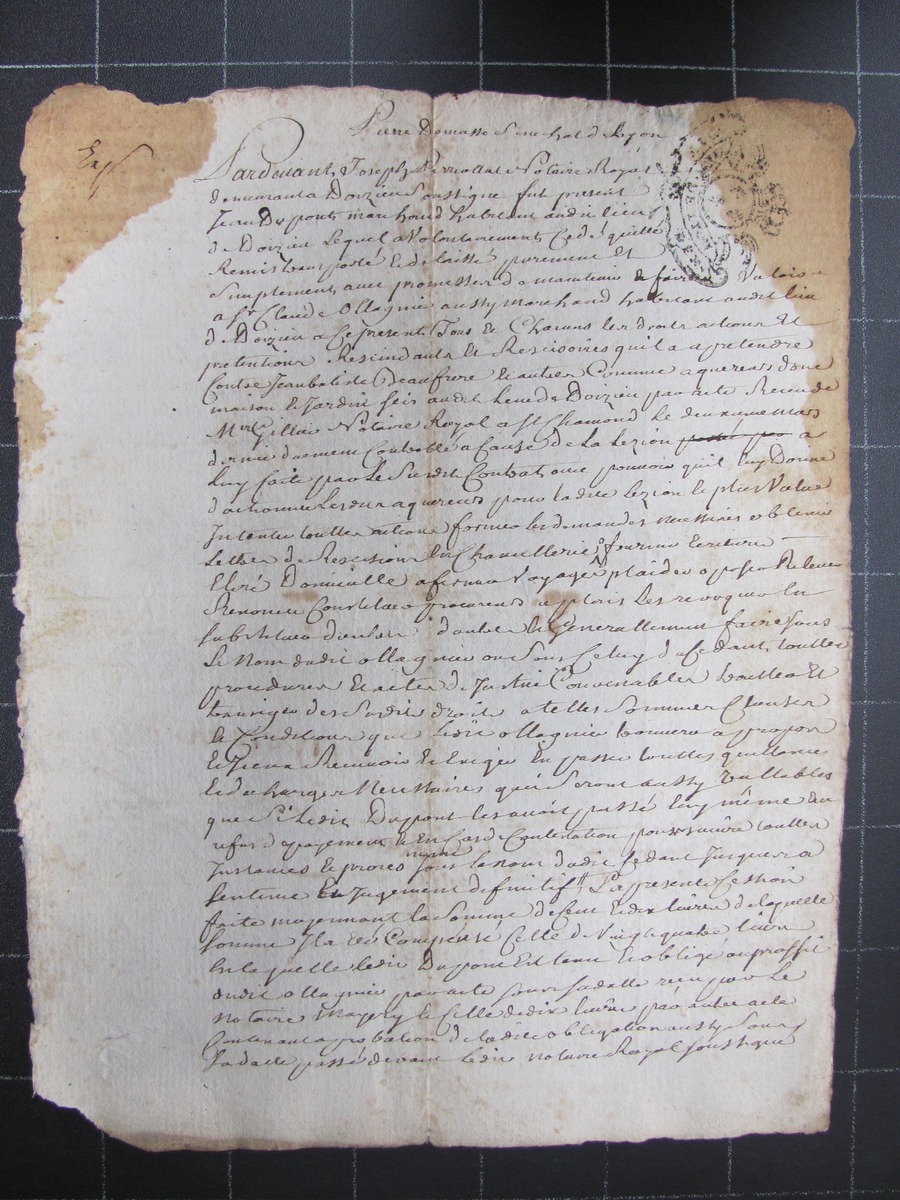 Exp
Pierre Dumasse Senechal de Lyon
Pardevant Joseph Perrollat Notaire Royal
demeurant a Doizieu Soussigné fut present
Jean Dupont marchand habitant audit lieu
de Doizieu Lequel a Volontairement Cedé quitté
Remis transporté Et delaissé purement Et
Simplement avec promesse de maintenir & faire Valoir
a Sr Claude Ollagnier aussy marchand habitant audit lieu
de Doizieu a Ce present Tous Et Chacuns les droits actions Et
pretentions Rescindants Et Rescisoires quil a a pretendre
Contre Jean batiste Beaufrere Et autres Comme aquereurs dune
maison Et Jardin scis audit lieu de Doizieu par acte Receu de
Mtre Notaire Royal a St Chamond le deuxieme mars
dernier duement Controllé a Cause de la Lezion a
luy faite par Le Susdit Contrat avec pouvoir quil luy Donne
dactionner Lesdits aquereurs pour ladite Lezion le plus Valué
Intenter touttes actions former les demandes necessaires obtenir
Lettres de Rescision En Chancellerie fournir Ecritures
Eliré Domicille afirmer Voyage plaider oposer Relever
Renoncer Constituer procureurs Exploits Les revoquer En
substituer dautres dautre Et Generallement faire sous
Le Nom dudit ollagnier ou Sous Celuy du Cedant touttes
procedures Et actes de Justice Convenables traitter Et
transiger desdits droits a telles Sommes Clauses
Et Conditions que Ledit ollagnier trouvera a propos
Et Iceux Recevoir Et Exiger En passer touttes quittances
Et decharges Necessaires qui Seront aussy Vallables
que Si Ledit Dupont les avoit passé Luy même Au
refus de payement Et En Cas de Contestation poursuivre touttes
Instances Et procès même sous le nom dudit Cedant Jusques a
Sentence Et Jugement definitif La presente Cession
faite moyennant la Somme de Cent Et dix livres de laquelle
Somme Il a Eté Compensé Celle de Vingt quatre livres
En laquelle ledit Dupont Est tenu Et obligé au proffit
dudit ollagnier par acte sous sa datte reçu par Le
Notaire Et Celle de dix livres par autre acte
Contenant aprobation de ladite obligation aussy Sous
Sa datte passé devant ledit Notaire Royal soussigné